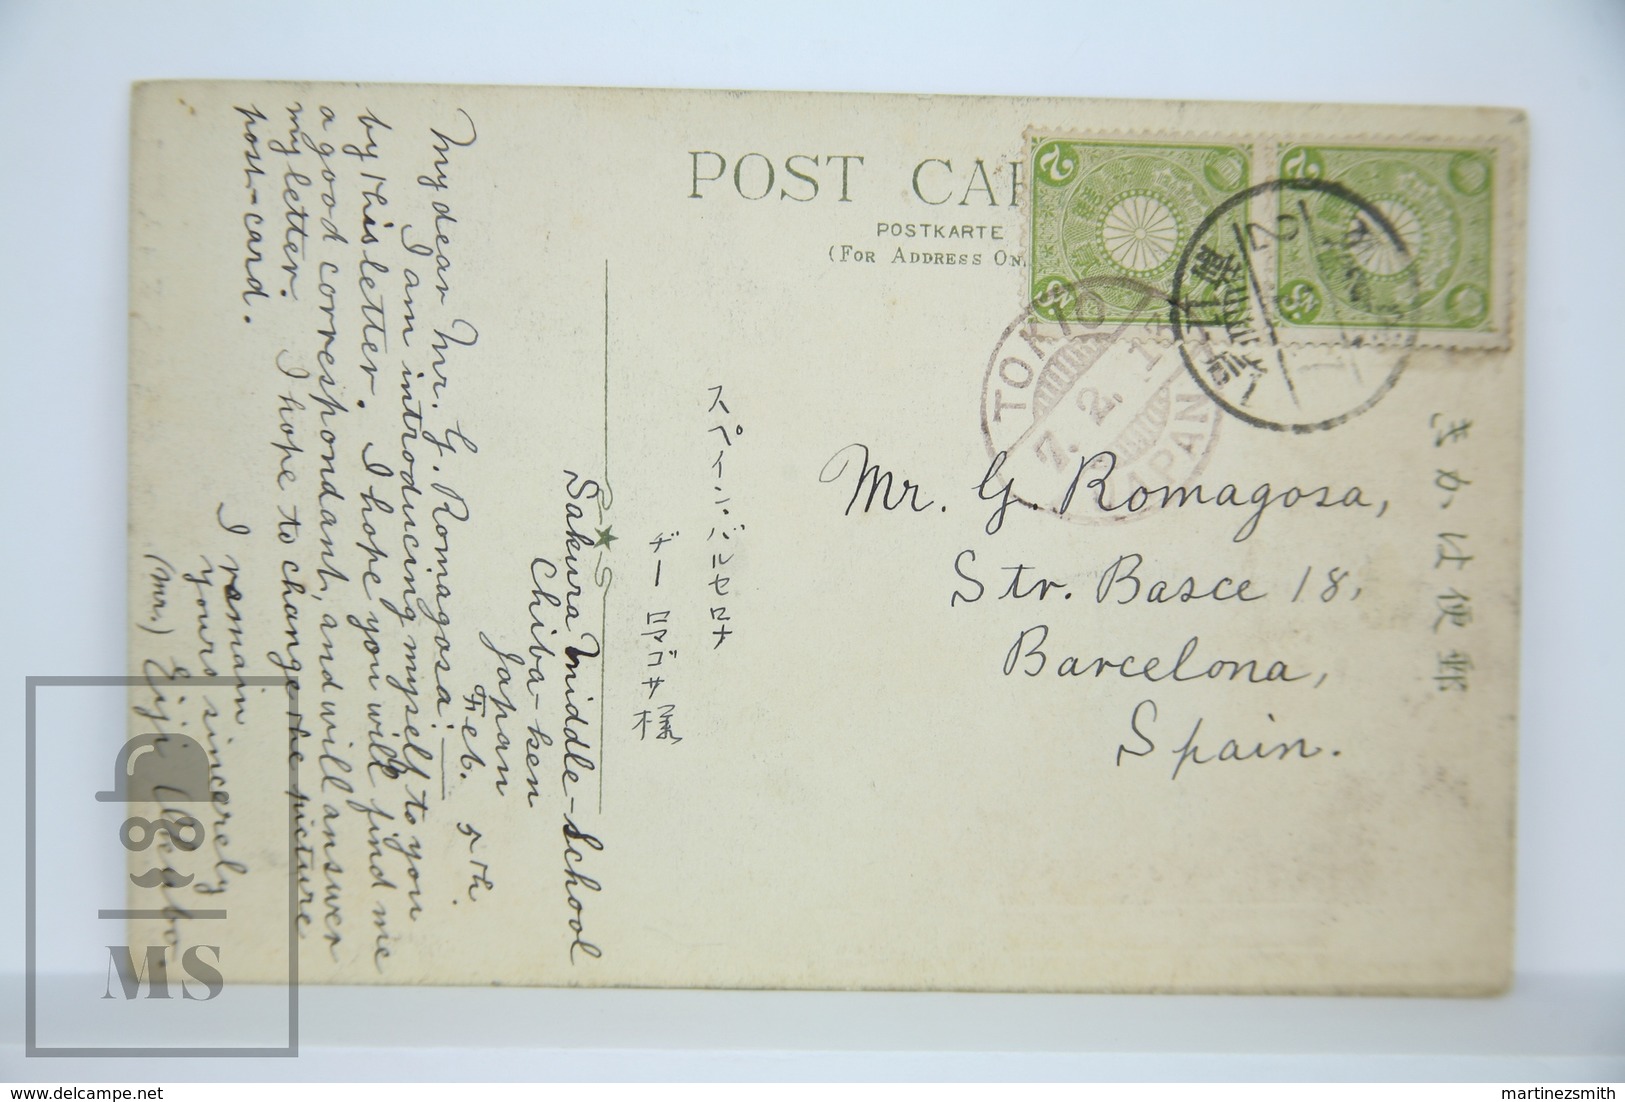 POST CAR
POSTKARTE
(For Address On
TOKIO
7.2.13
JAPAN
きかは便郵
Mr. G. Romagosa,
Str. Basce 18,
Barcelona,
Spain.
スペイン、バルセロナ
ヂー ロマゴサ様
Sakura Middle-School
Chiba-ken
Japan
Feb. 5th.
My dear Mr. G. Romagosa:
I am introducing myself to you
by this letter. I hope you will find me
a good correspondant, and will answer
my letter. I hope to change the picture
post-card.
I remain
yours sincerely
(Mr.) Eiji
MS
delcampe.net
martinezsmith